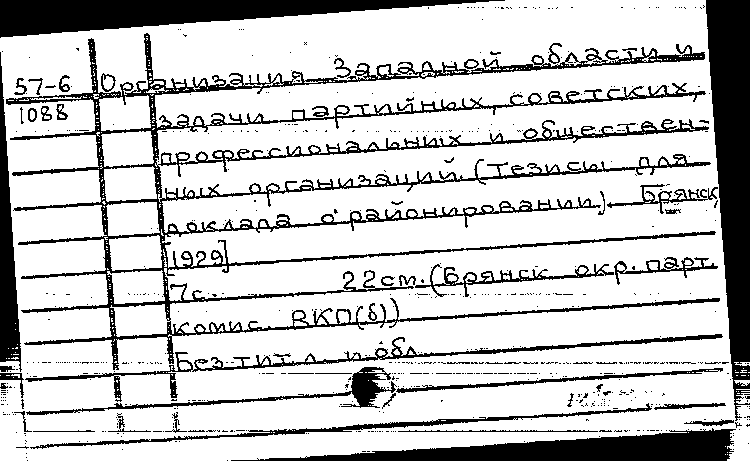 57-6 Организация Западной области и
1088 задачи партийных, советских,
профессиональных и обществен-
ных организаций (Тезисы для
доклада о районировании). Брянск,
[1929].
7с. 22см. (Брянск окр. парт.
комис. ВКП(б))
Без тит. л. и обл.